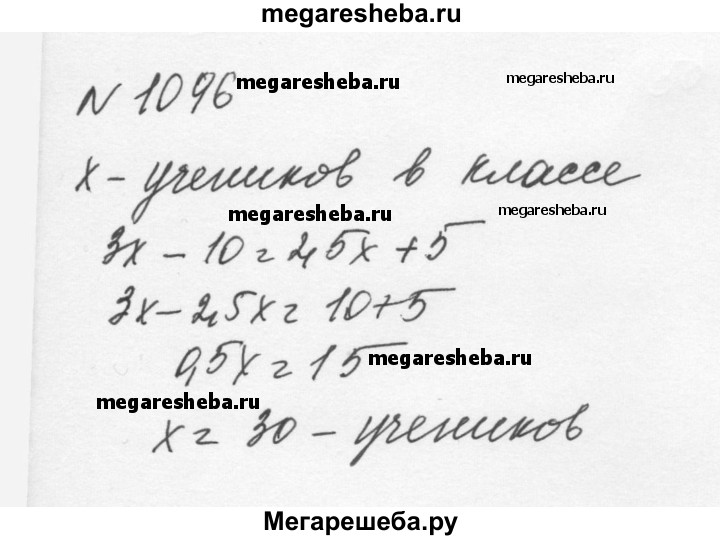 megaresheba.ru
N 1096 megaresheba.ru megaresheba.ru
x - учеников в классе
megaresheba.ru megaresheba.ru
3x - 10 = 2,5x + 5
3x - 2,5x = 10 + 5
0,5x = 15 megaresheba.ru
megaresheba.ru
x = 30 - учеников
Мегарешеба.ру